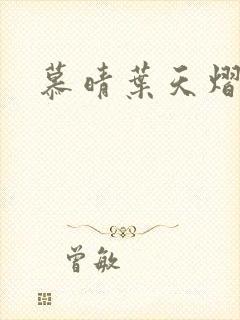 慕晴葉天熠
曾敏